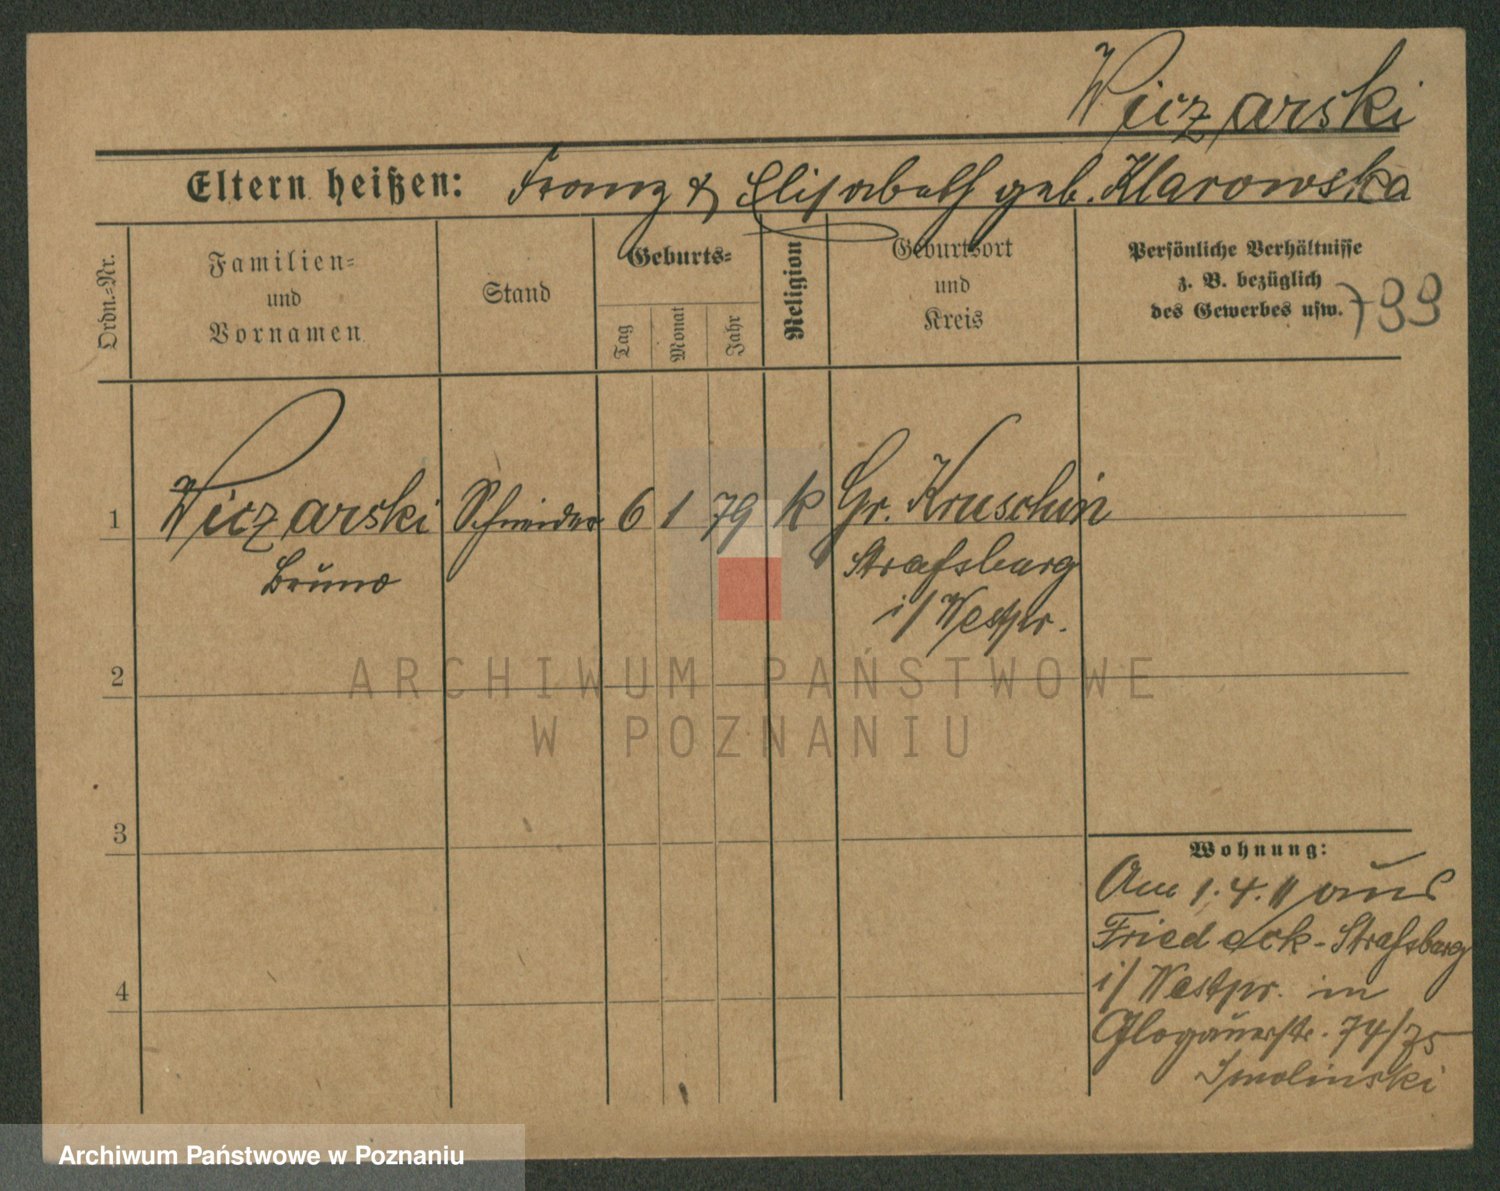 Wiczarski
Eltern heißen: Franz & Elisabeth geb. Klarowska
Ordn.-Nr.
Familien-
und
Vornamen
Stand
Geburts-
Tag
Monat
Jahr
Religion
Geburtsort
und
Kreis
Persönliche Verhältnisse
z. B. bezüglich
des Gewerbes usw.
799
1 Wiczarski Schneider 6 1 79 k Gr. Kruschin
Bruno
Strafsburg
i/ Westpr.
2
3
4
Wohnung:
Am 1.4.11 aus
Friedeck-Strafsburg
i/ Westpr. in
Glogauerstr. 74/75
Smolinski
ARCHIWUM PAŃSTWOWE
W POZNANIU
Archiwum Państwowe w Poznaniu